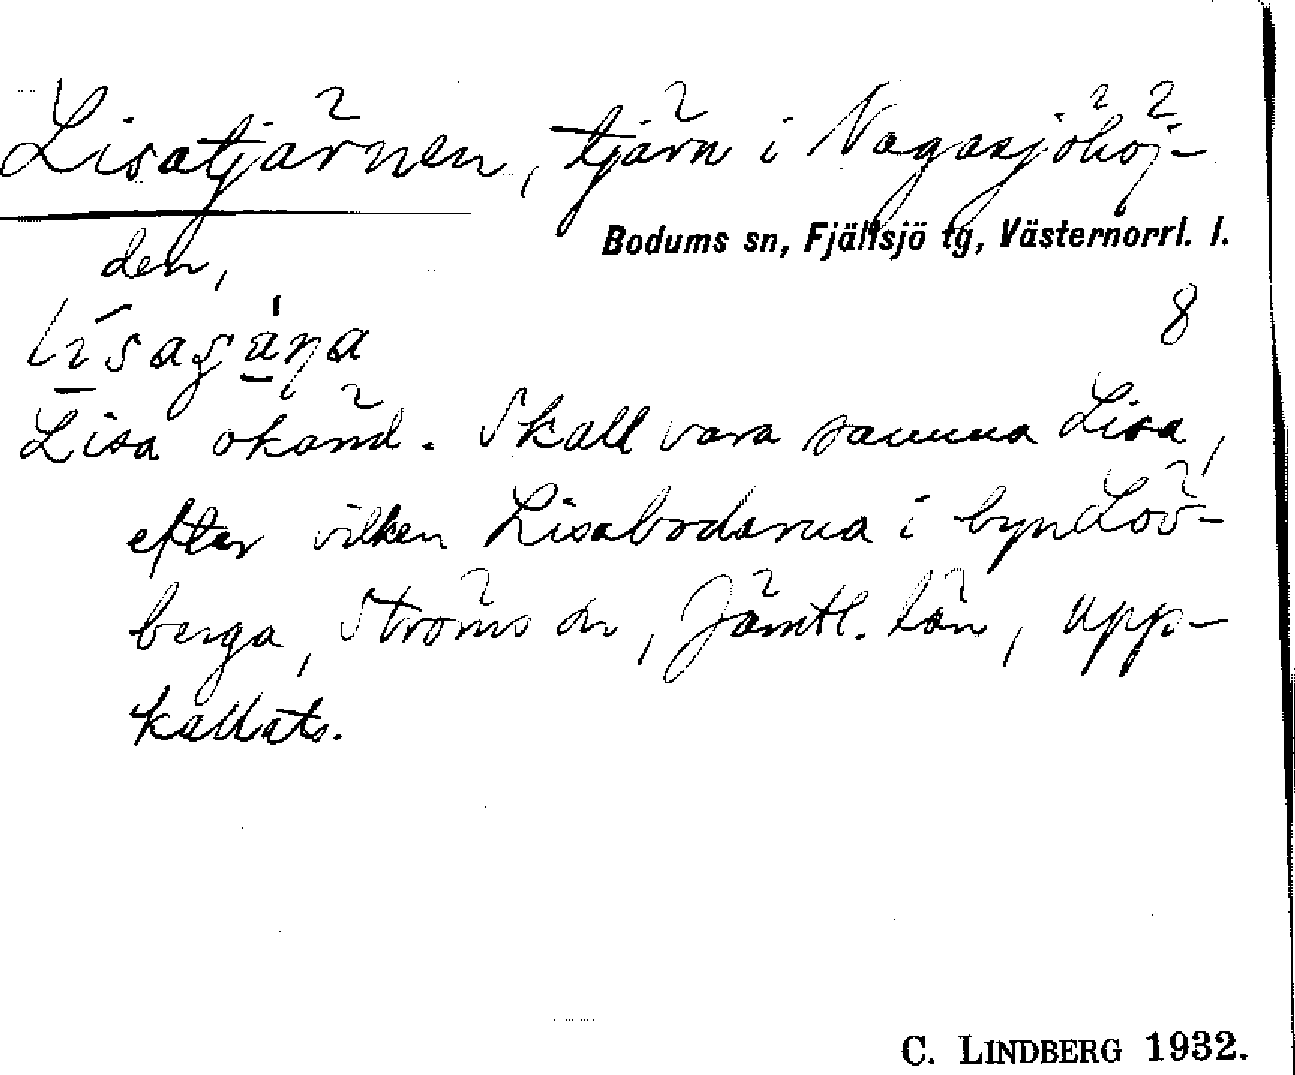 Lisatjärnen, tjärn i Nagasjöhöj-
Bodums sn, Fjällsjö tg, Västernorrl. l.
den,
8
Lisa okänd. Skall vara samma Lisa,
efter vilken Lisabodarna i byn Löv-
berga, Ströms sn, Jämtl. län, upp-
kallats.
C. LINDBERG 1932.